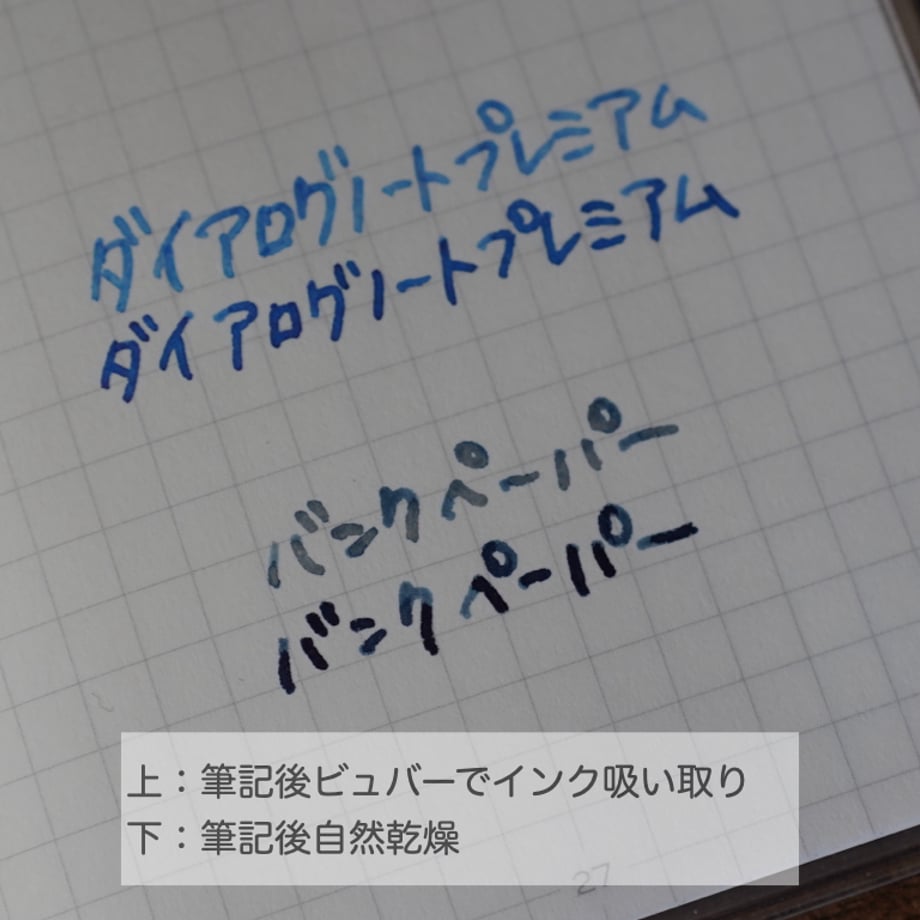 ダイアログノートプレミアム
ダイアログノートプレミアム
バンクペーパー
バンクペーパー
上：筆記後ビュバーでインク吸い取り
下：筆記後自然乾燥
27